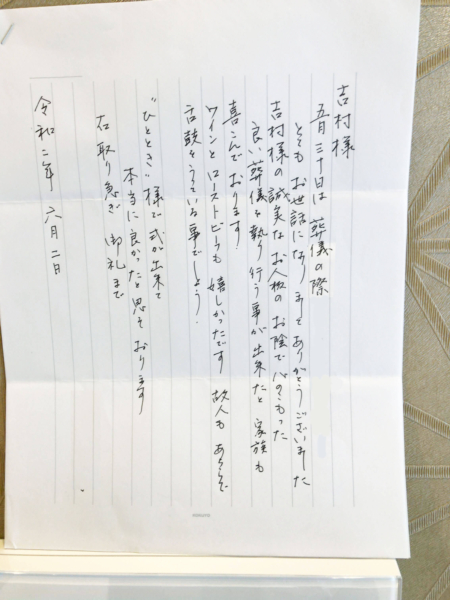 吉村様
五月三十日は葬儀の際
とてもお世話になりましてありがとうございました
吉村様の誠実なお人柄のお陰で心のこもった
良い葬儀を執り行う事が出来たと家族も
喜こんでおります
ワインとローストビーフも嬉しかったです 故人もあちらで
舌鼓をうっている事でしょう.
"ひととき"様で式が出来て
本当に良かったと思っております
右取り急ぎ 御礼まで
令和二年 六月二日